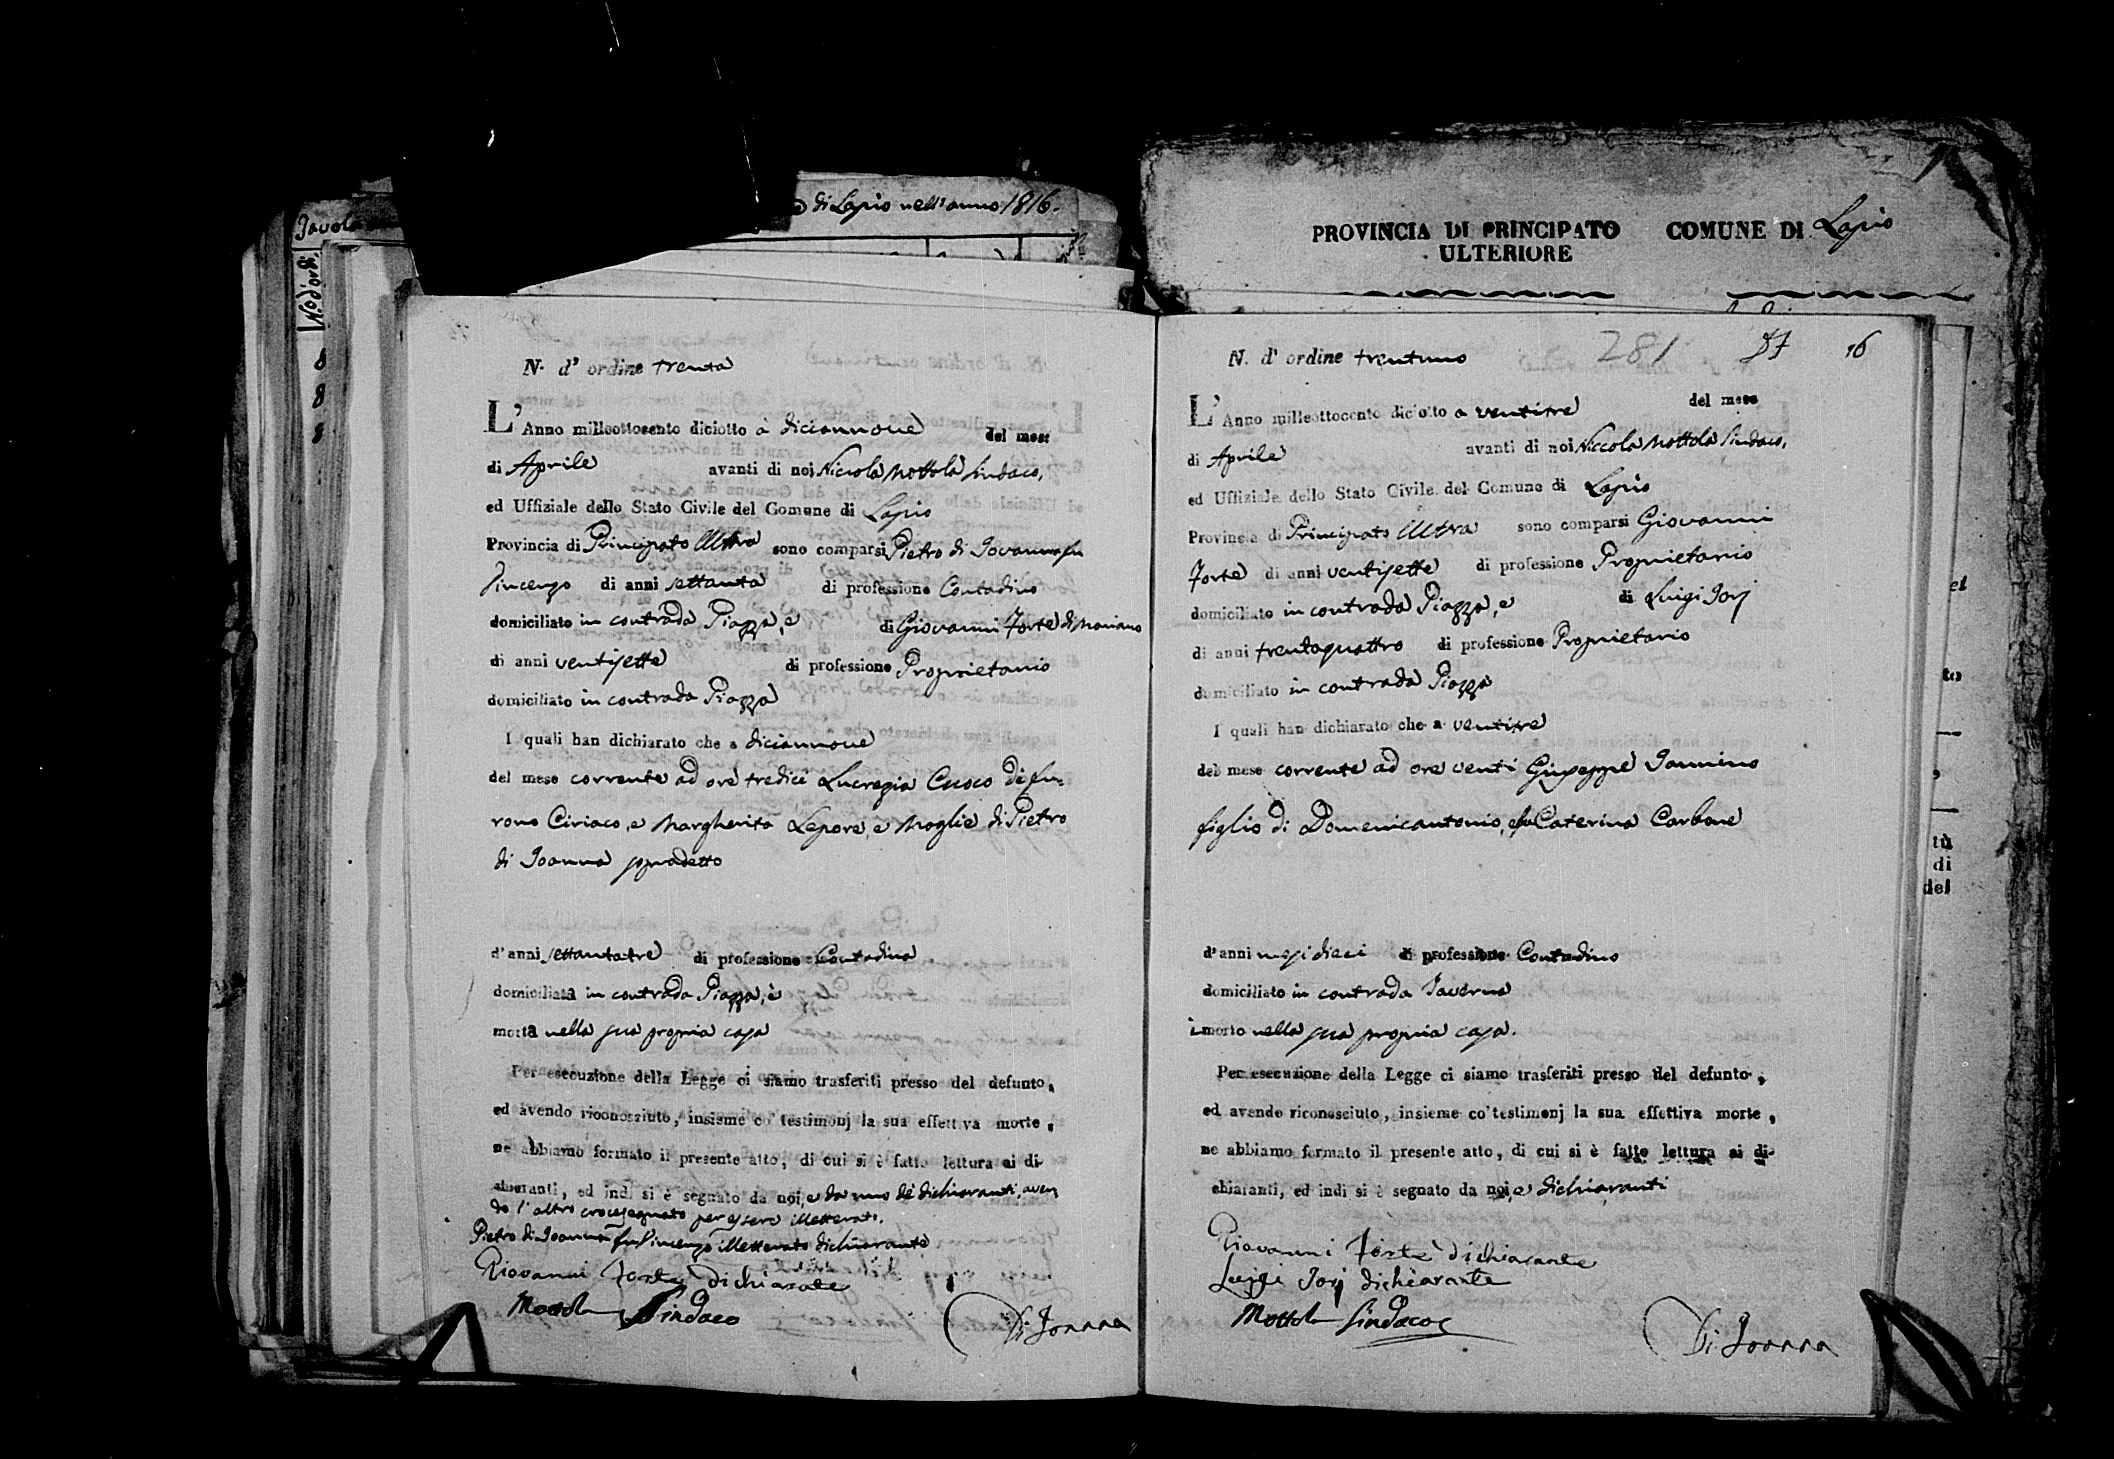 di Lapio nell'anno 1816.
Tavola
N.o d'ordi.
N. d' ordine trenta
L'Anno milleottocento diciotto a diciannove del mese
di Aprile avanti di noi Niccola Mottola Sindaco,
ed Uffiziale dello Stato Civile del Comune di Lapio
Provincia di Principato Ultra sono comparsi Pietro di Iovanna fu
Vincenzo di anni settanta di professione Contadino
domiciliato in contrada Piazza, e di Giovanni Forte di Mariano
di anni ventisette di professione Proprietario
domiciliato in contrada Piazza
I quali han dichiarato che a diciannove
del mese corrente ad ore tredici Lucrezia Cuoco di fu-
rono Ciriaco, e Margherita Lepore, e Moglie di Pietro
di Ioanna sopradetto
d'anni settantatre di professione Contadina
domiciliata in contrada Piazza, è
morta nella sua propria casa
Per esecuzione della Legge ci siamo trasferiti presso del defunto,
ed avendo riconosciuto, insieme co' testimonj la sua effettiva morte,
ne abbiamo formato il presente atto, di cui si è fatto lettura ai di-
chiaranti, ed indi si è segnato da noi, e da uno de' dichiaranti, aven
do l'altro crocesegnato per essere illetterato.
Pietro di Ioanna fu Vincenzo illetterato dichiarante
Giovanni Forte dichiarante
Mottola Sindaco
Di Ioanna
PROVINCIA DI PRINCIPATO COMUNE DI Lapio
ULTERIORE
281 57 16
N. d' ordine trentuno
L'Anno milleottocento diciotto a ventitre del mese
di Aprile avanti di noi Niccola Mottola Sindaco,
ed Uffiziale dello Stato Civile del Comune di Lapio
Provincia di Principato Ultra sono comparsi Giovanni
Forte di anni ventisette di professione Proprietario
domiciliato in contrada Piazza, e di Luigi Iorj
di anni trentaquattro di professione Proprietario
domiciliato in contrada Piazza
I quali han dichiarato che a ventitre
del mese corrente ad ore venti Giuseppe Iannino
figlio di Domenicantonio, e fu Caterina Carbone
d'anni mesi dieci di professione Contadino
domiciliato in contrada Taverna
è morto nella sua propria casa.
Per esecuzione della Legge ci siamo trasferiti presso del defunto,
ed avendo riconosciuto, insieme co' testimonj la sua effettiva morte,
ne abbiamo formato il presente atto, di cui si è fatto lettura ai di-
chiaranti, ed indi si è segnato da noi, e dichiaranti
Giovanni Forte dichiarante
Luigi Iorj dichiarante
Mottola Sindaco
Di Ioanna